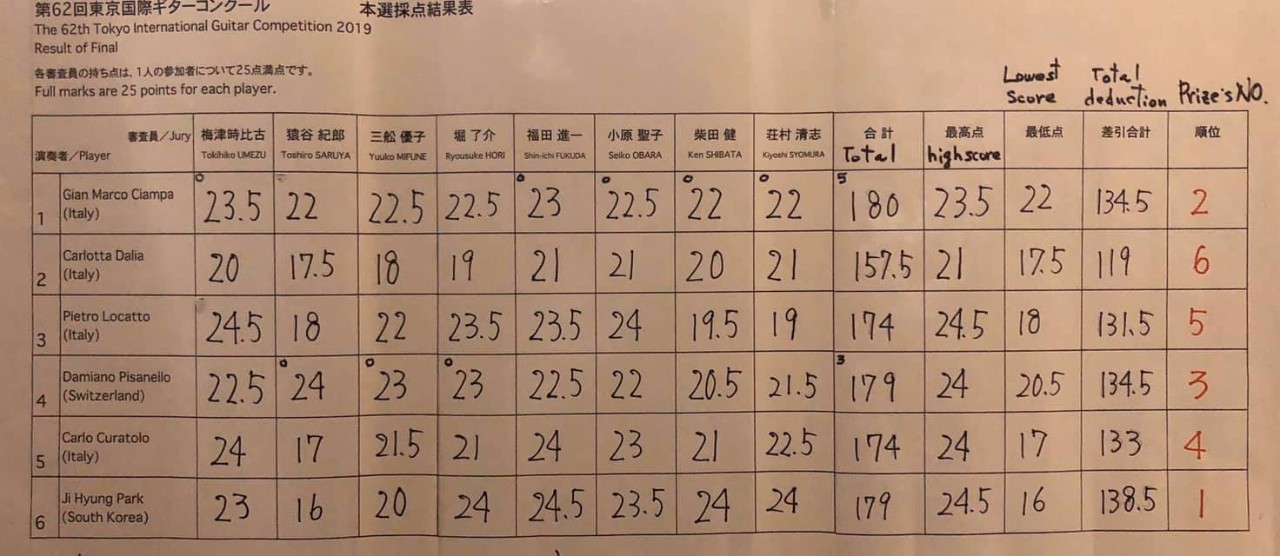 第62回東京国際ギターコンクール 本選採点結果表
The 62th Tokyo International Guitar Competition 2019
Result of Final
各審査員の持ち点は、1人の参加者について25点満点です。
Full marks are 25 points for each player.
Lowest Score Total deduction Prize's NO.
審査員/Jury 梅津時比古 猿谷 紀郎 三舩 優子 堀 了介 福田 進一 小原 聖子 柴田 健 荘村 清志 合計 最高点 最低点 差引合計 順位
演奏者/Player Tokihiko UMEZU Toshiro SARUYA Yuuko MIFUNE Ryousuke HORI Shin-ichi FUKUDA Seiko OBARA Ken SHIBATA Kiyoshi SYOMURA Total highscore
1 Gian Marco Ciampa (Italy) 23.5 22 22.5 22.5 23 22.5 22 22 5 180 23.5 22 134.5 2
2 Carlotta Dalia (Italy) 20 17.5 18 19 21 21 20 21 157.5 21 17.5 119 6
3 Pietro Locatto (Italy) 24.5 18 22 23.5 23.5 24 19.5 19 174 24.5 18 131.5 5
4 Damiano Pisanello (Switzerland) 22.5 24 23 23 22.5 22 20.5 21.5 3 179 24 20.5 134.5 3
5 Carlo Curatolo (Italy) 24 17 21.5 21 24 23 21 22.5 174 24 17 133 4
6 Ji Hyung Park (South Korea) 23 16 20 24 24.5 23.5 24 24 179 24.5 16 138.5 1